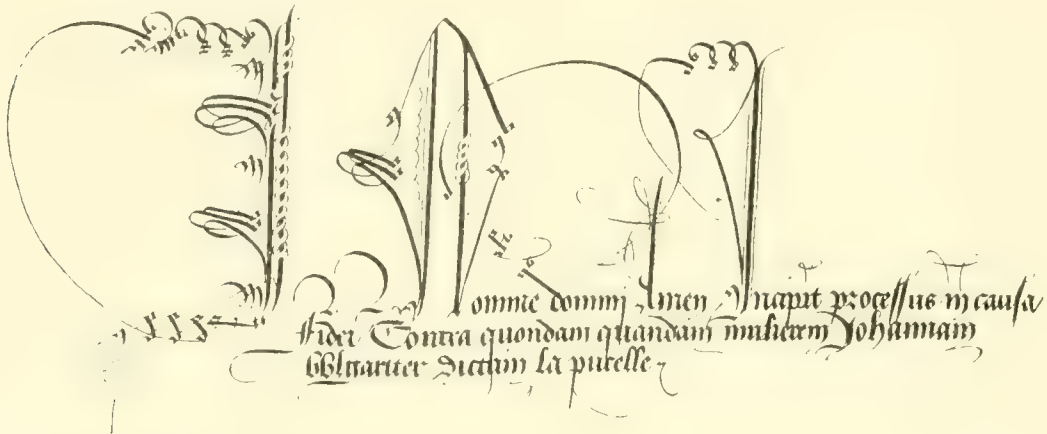 In Nomine domini Amen Incipit processus in causa
fidei Contra quondam quandam mulierem Johannam
Wlgariter dictam la pucelle